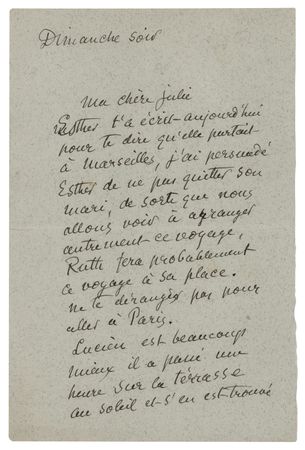 Dimanche soir
Ma chère Julie
Esther t'a écrit aujourd'hui
pour te dire qu'elle partait
à Marseilles, j'ai persuadé
Esther de ne pas quitter son
mari, de sorte que nous
allons voir à arranger
autrement ce voyage,
Ruth fera probablement
ce voyage à sa place.
ne te déranges pas pour
aller à Paris.
Lucien est beaucoup
mieux il a passé une
heure sur la terrasse
au soleil et s'en est trouvé